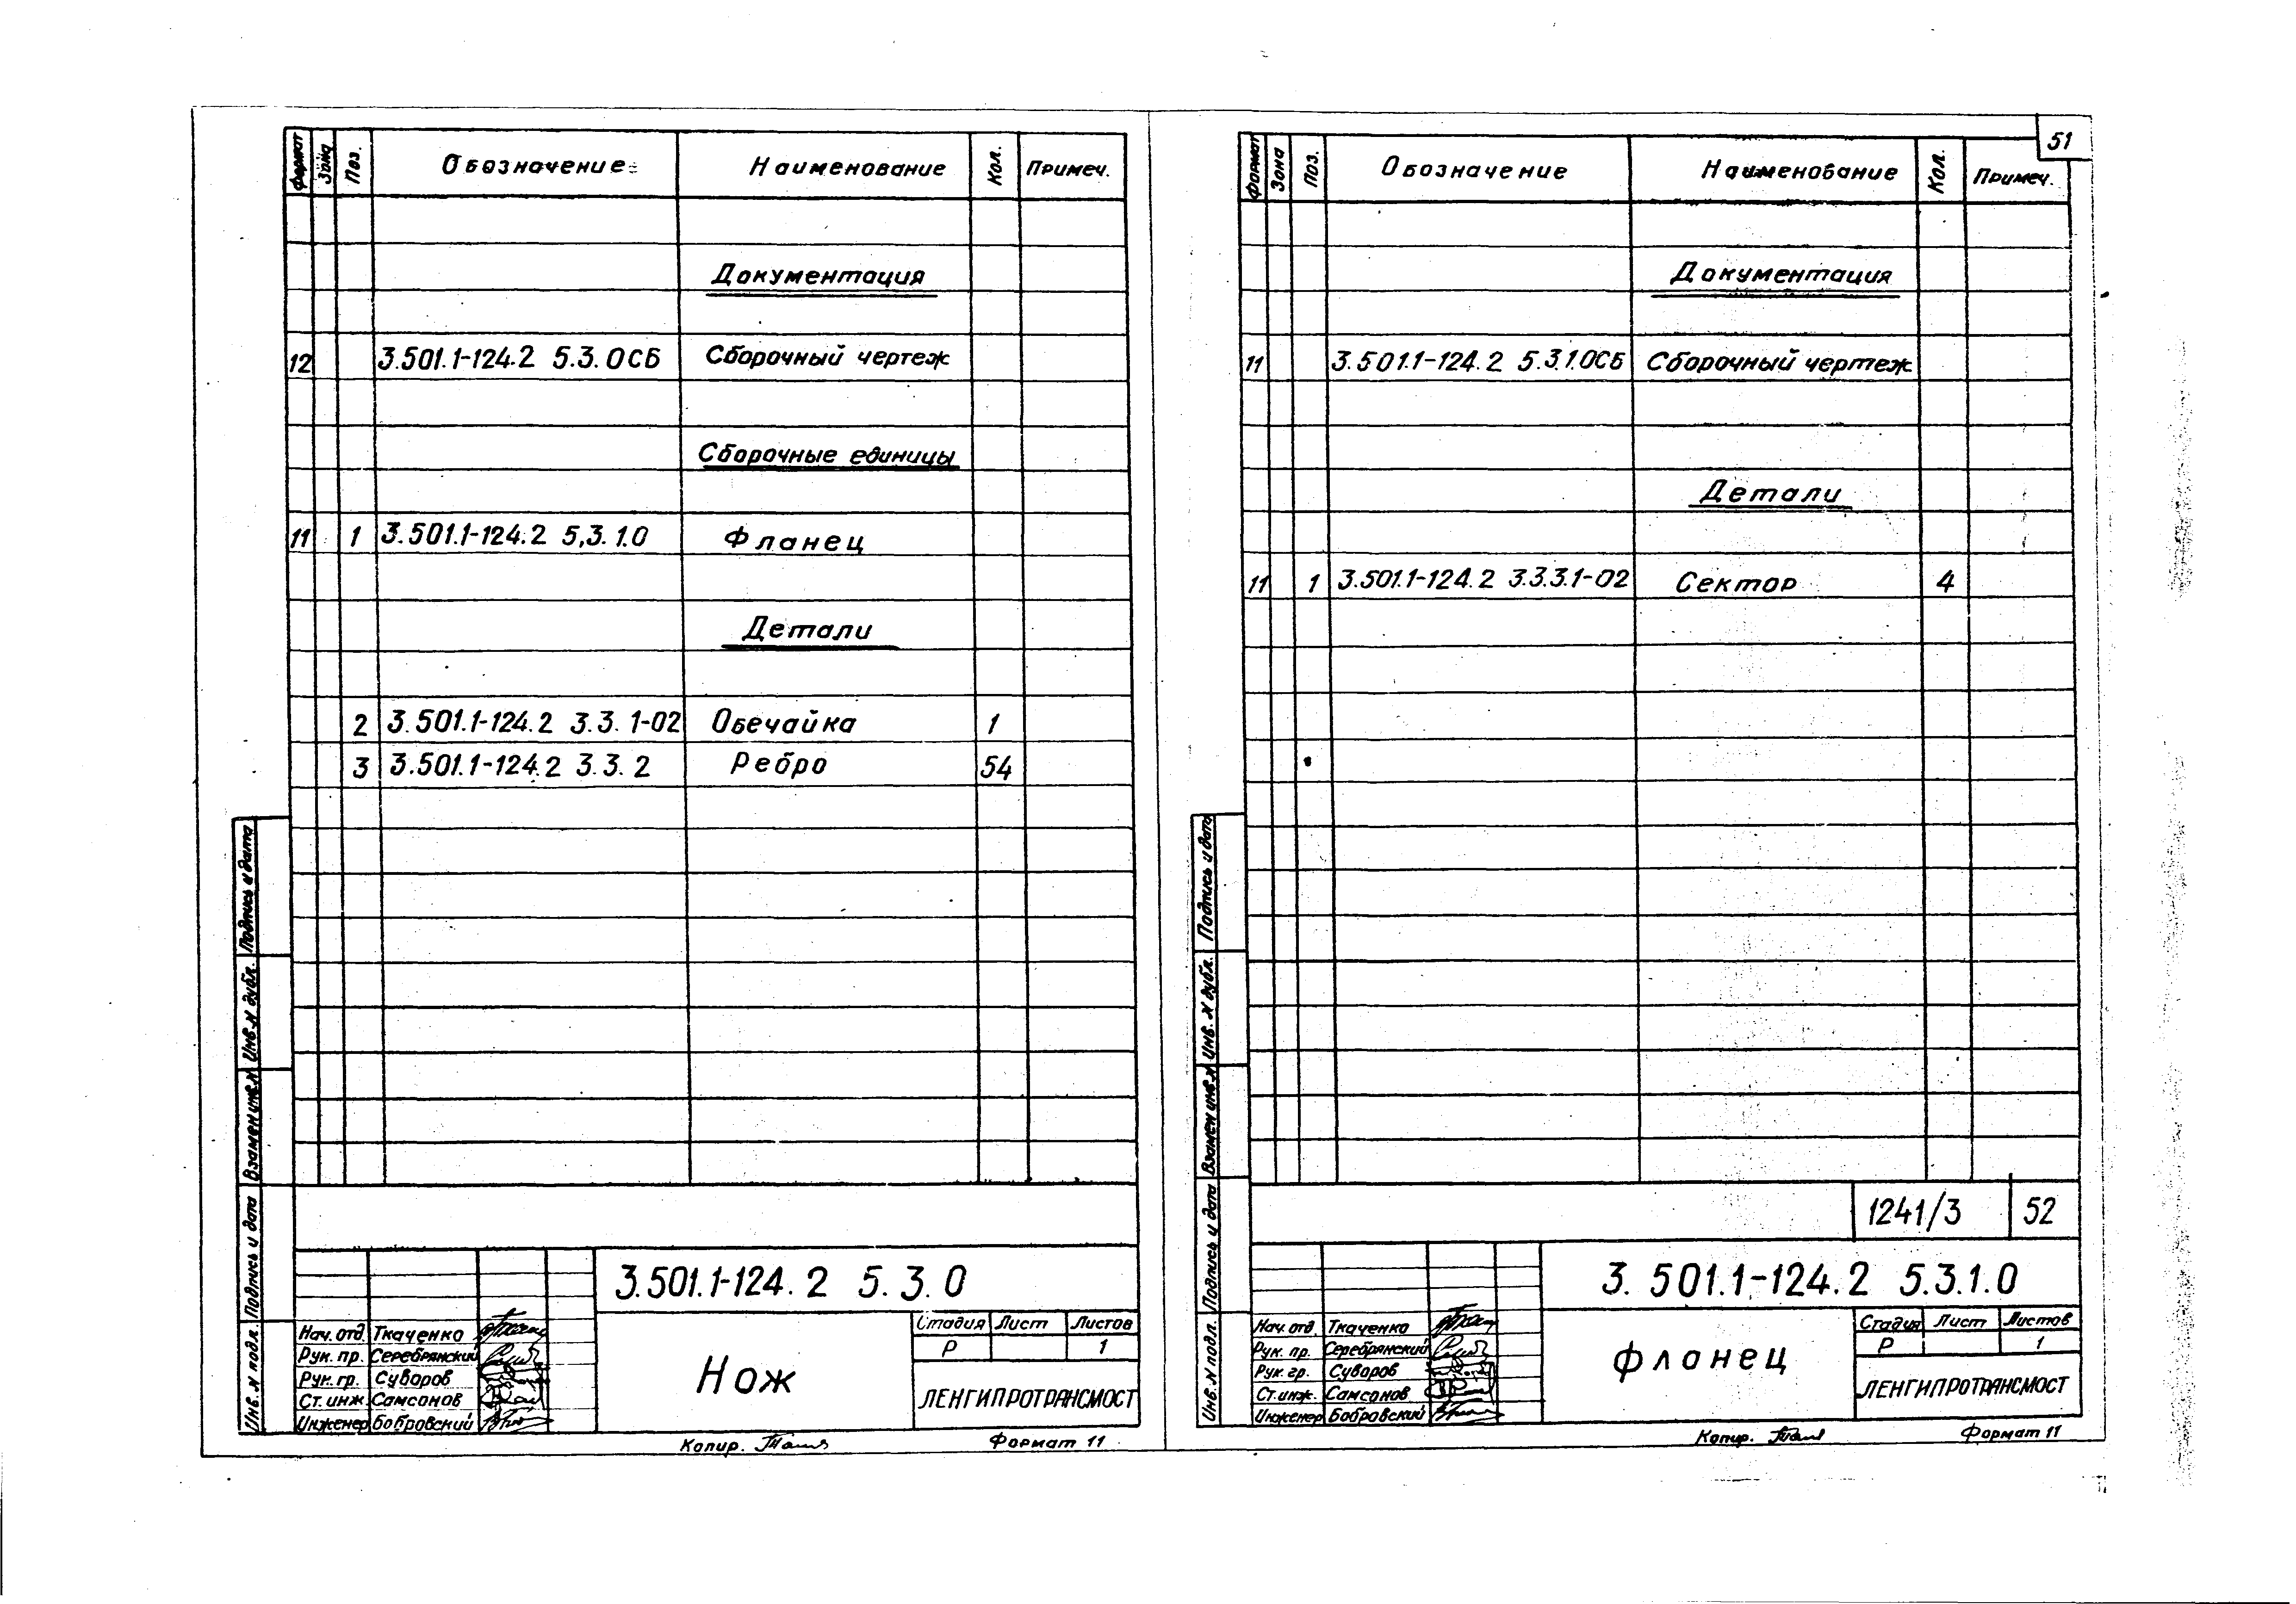 Формат Зона Поз. Обозначение Наименование Кол. Примеч.
Документация
12 3.501.1-124.2 5.3.0СБ Сборочный чертеж
Сборочные единицы
11 1 3.501.1-124.2 5,3.1.0 Фланец
Детали
2 3.501.1-124.2 3.3.1-02 Обечайка 1
3 3.501.1-124.2 3.3.2 Ребро 54
Подпись и дата
Инв.N дубл.
Взамен инв.N
Подпись и дата
Инв.N подл.
3.501.1-124.2 5.3.0
Нач.отд. Ткаченко
Рук. пр. Серебрянский
Рук. гр. Суворов
Ст. инж. Самсонов
Инженер Бобровский
Нож
Стадия Лист Листов
Р 1
ЛЕНГИПРОТРАНСМОСТ
Копир. Формат 11
51
Формат Зона Поз. Обозначение Наименование Кол. Примеч.
Документация
11 3.501.1-124.2 5.3.1.0СБ Сборочный чертеж
Детали
11 1 3.501.1-124.2 3.3.3.1-02 Сектор 4
Подпись и дата
Инв.N дубл.
Взамен инв.N
Подпись и дата
Инв.N подл.
1241/3 52
3.501.1-124.2 5.3.1.0
Нач. отд. Ткаченко
Рук. пр. Серебрянский
Рук. гр. Суворов
Ст.инж. Самсонов
Инженер Бобровский
Фланец
Стадия Лист Листов
Р 1
ЛЕНГИПРОТРАНСМОСТ
Копир. Формат 11